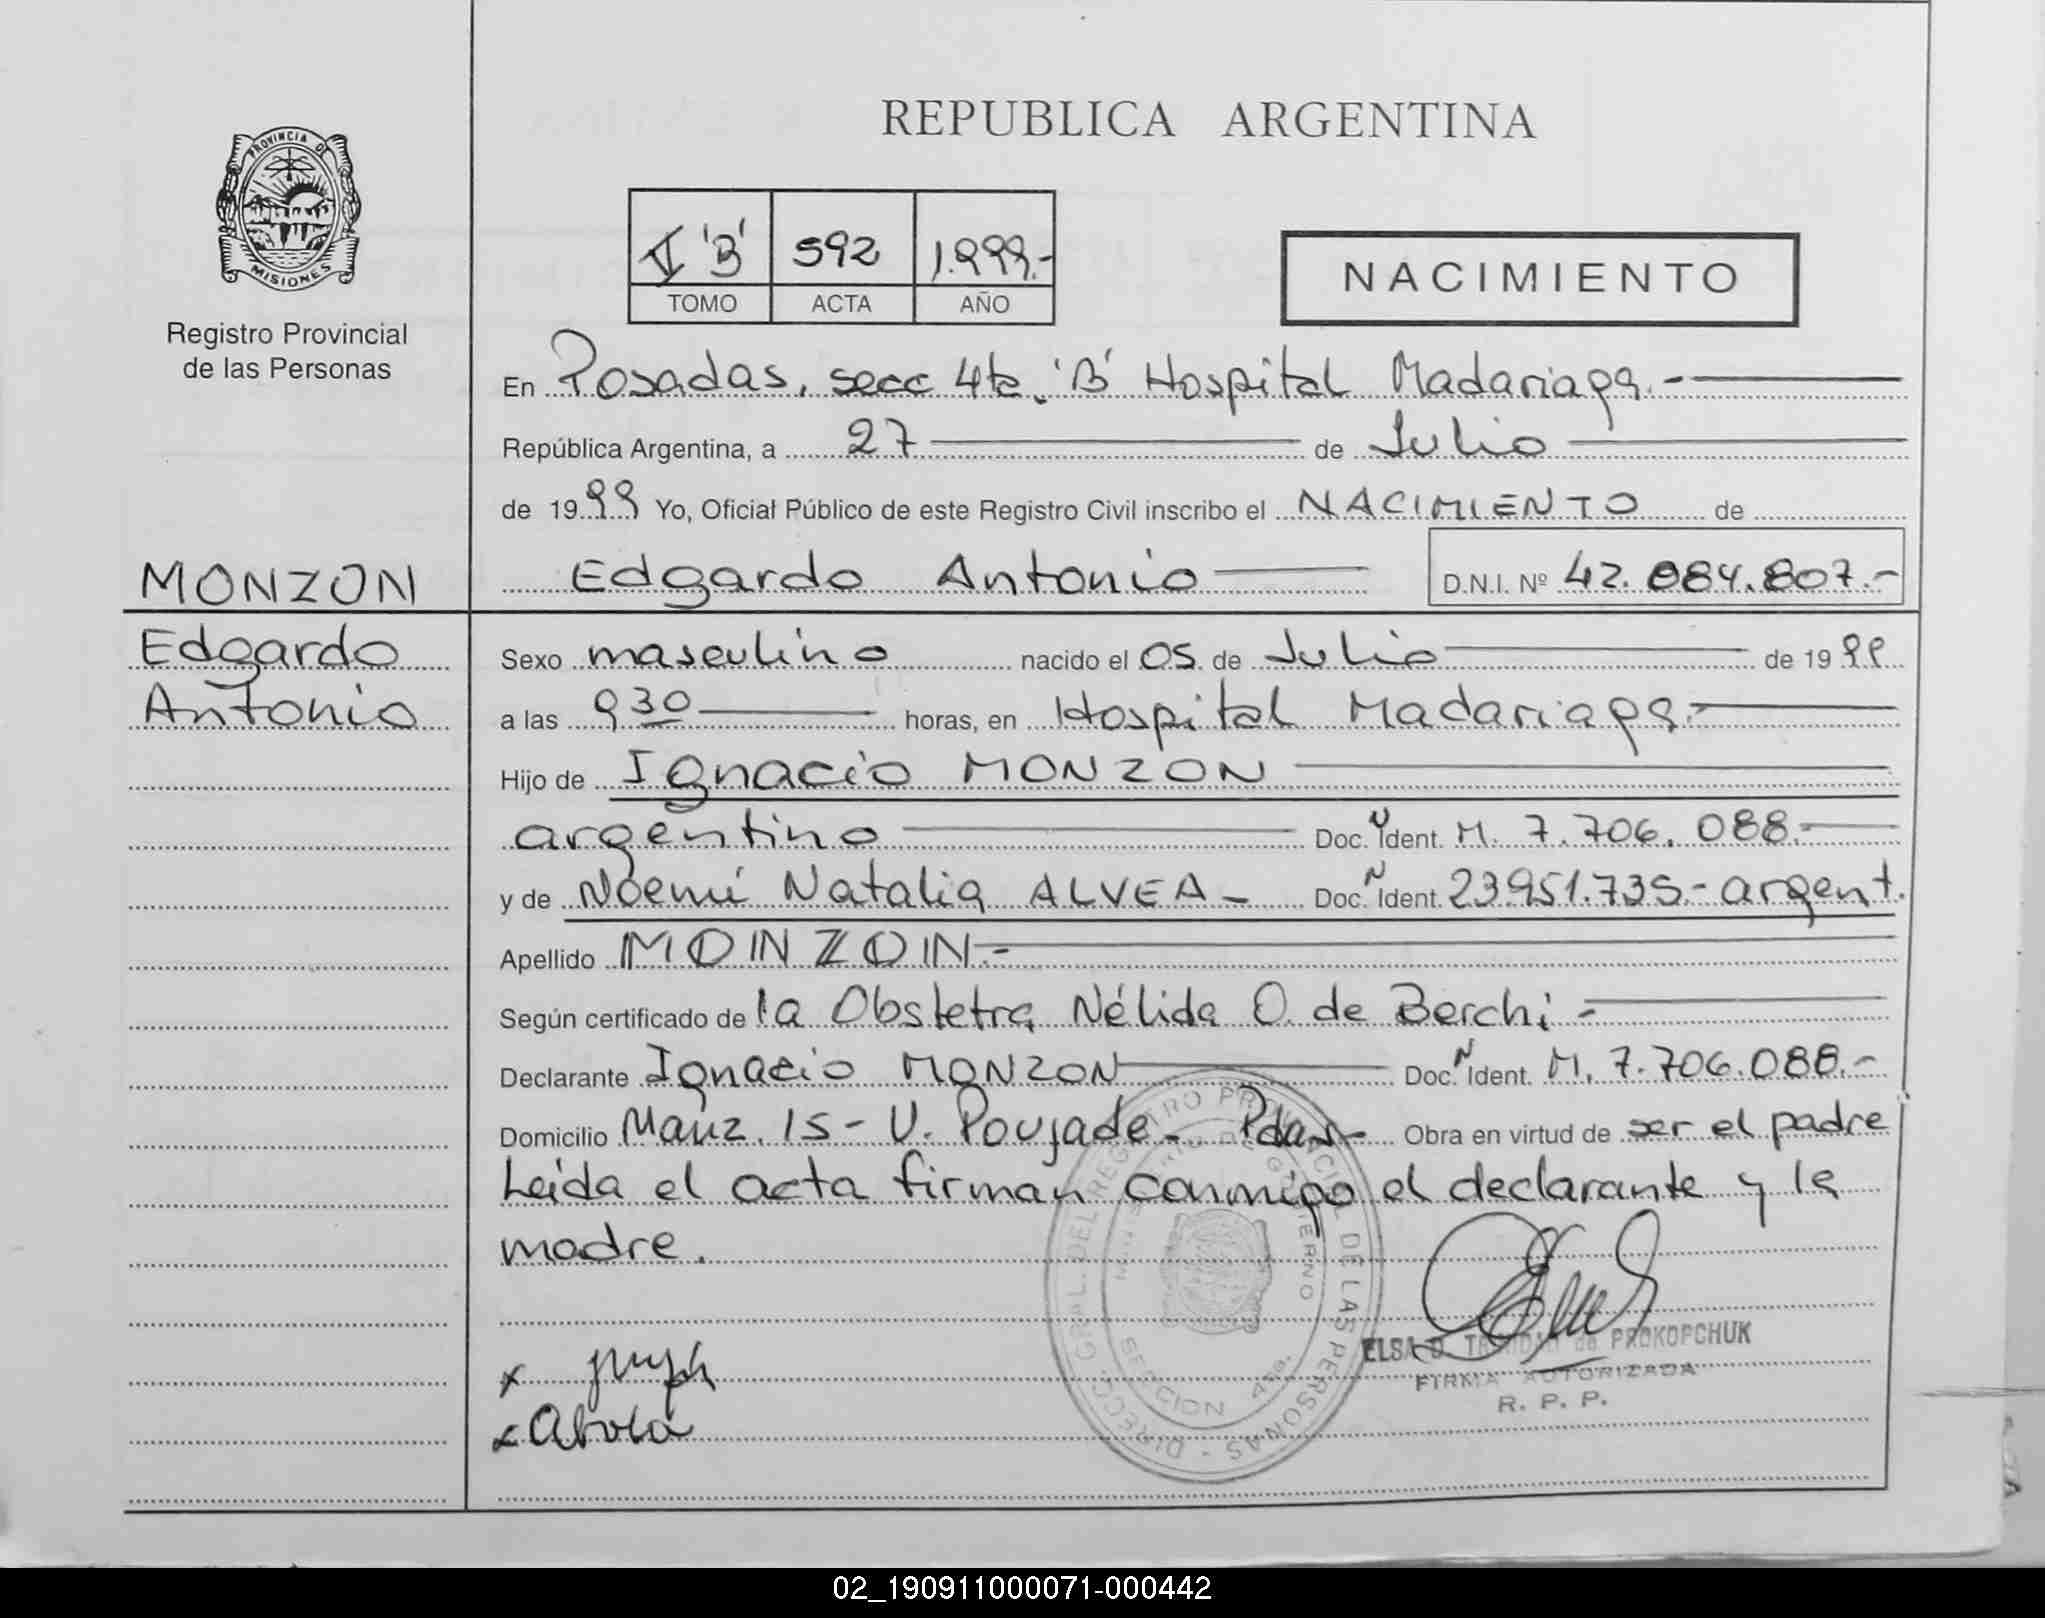 REPUBLICA ARGENTINA
PROVINCIA DE
MISIONES
Registro Provincial
de las Personas
V 'B' 592 1.999.-
TOMO ACTA AÑO
NACIMIENTO
En Posadas, secc 4ta. 'B' Hospital Madariaga.-
República Argentina, a 27 de Julio
de 1999 Yo, Oficial Público de este Registro Civil inscribo el NACIMIENTO de
MONZON
Edgardo Antonio D.N.I. Nº 42.084.807.-
Edgardo
Antonio
Sexo masculino nacido el 05 de Julio de 1999
a las 9 30 horas, en Hospital Madariaga.-
Hijo de Ignacio MONZON
argentino Doc. N Ident. M. 7.706.088.-
y de Noemí Natalia ALVEA - Doc. N Ident. 23.951.735.- argent.
Apellido MONZON.-
Según certificado de la Obstetra Nélida O. de Berchi -
Declarante Ignacio MONZON Doc. N Ident. M. 7.706.088.-
Domicilio Manz. 15 - V. Poujade - Pdas - Obra en virtud de ser el padre
Leida el acta firman conmigo el declarante y la
madre.
DIRECC. GRAL. DEL REGISTRO PROVINCIAL DE LAS PERSONAS -
MINISTERIO DE GOBIERNO
SECCION 4ta.
ELSA D. de PROKOPCHUK
FIRMA AUTORIZADA
R. P. P.
02_190911000071-000442